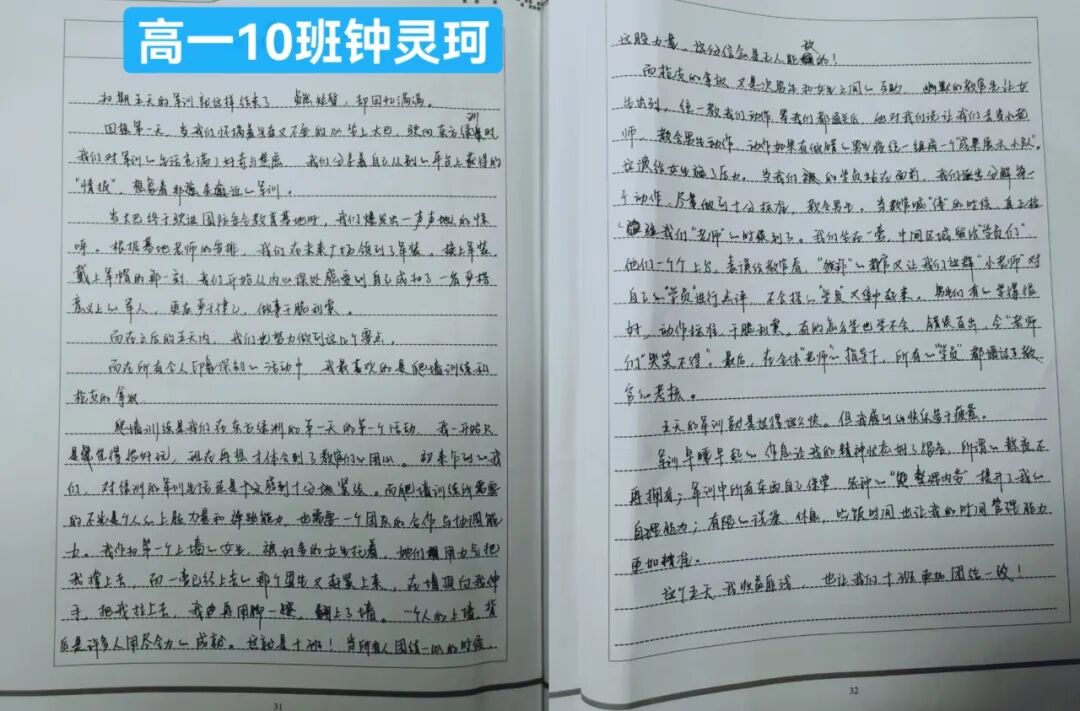 高一10班钟灵珂
为期五天的军训就这样结束了 虽短暂，却回忆满满。
回想第一天，当我们怀揣着兴奋又不安的心坐上大巴，驶向东方绿洲时
我们对军训的生活充满了好奇与焦虑 我们分享着自己从别的平台上获得的
"情报"，想象着那越来越近的军训。
当大巴终于驶进国防安全教育基地时，我们爆发出一声声地的惊
呼。根据基地老师的安排，我们在未来广场领到了军装。换上军装，
戴上军帽的那一刻，我们开始从内心深处感受到自己成为了一名严格
意义上的军人，要在乎于律己，做事干脆利索。
而在之后的五天内，我们也努力做到这几个要点。
而在所有令人印象深刻的活动中 我最喜欢的是爬墙训练和
爬墙训练是我们在东方绿洲的第一天的第一个活动，我一开始只
是觉得很好玩，现在再想才体会到了教官们的用心。初来乍到的我
们，对绿洲的军训生活还是十分感到十分地紧张。而爬墙训练所需要
的不光是个人的上肢力量和 能力，也需要一个团队的合作与协调能
力。我作为第一个上墙的女生，被好多的女生托着，她们用力气把
我撑上去，而一旁已经上去的那个男生又赶紧上来，在墙顶向我伸
手，把我拉上去，我再用脚一蹬，翻上了墙。一个人的上墙，背
后是许多人用尽全力的成就。这就是十班！当所有人团结一心的时候，
31
这股力量，这份信念是无人能敌的！
而 又是次男生和女生之间的互助。幽默的教官先让女
生出列，统一教我们动作，等我们都学会后，他对我们说让我们去当小老
师，教会男生动作，动作如果有做错的男生将统一组成一个"成果展示小队"。
这课给女生施了压力。当我们的学员站在面前，我们逐步分解每一
个动作，尽量做到十分标准，教会男生。当教官喊"停"的时候，真正检
验我们"老师"的时候到了。我们坐在一旁，中间区域留给"学员们"。
他们一个个上台，表演给教官看，"唯一"的教官又让我们这群"小老师"对
自己的"学员"进行点评，不合格的"学员"又集中起来。男生们有的学得很
好，动作标准，干脆利索，有的怎么学也学不会，错误百出，令"老师
们"哭笑不得。最后，在全体"老师"的指导下，所有的"学员"都通过了教
官的考核。
五天的军训就是过得这么快。但我感到的快乐多于疲惫。
军训早睡早起的作息让我的精神状态好了很多，所谓的熬夜不
再拥有；军训中所有东西自己保管，各种的"整理内务"提升了我的
自理能力；有限的洗漱、休息、吃饭时间也让我的时间管理能力
更加精准。
这个五天 我收益匪浅，也让我们十班更加团结一致！
32